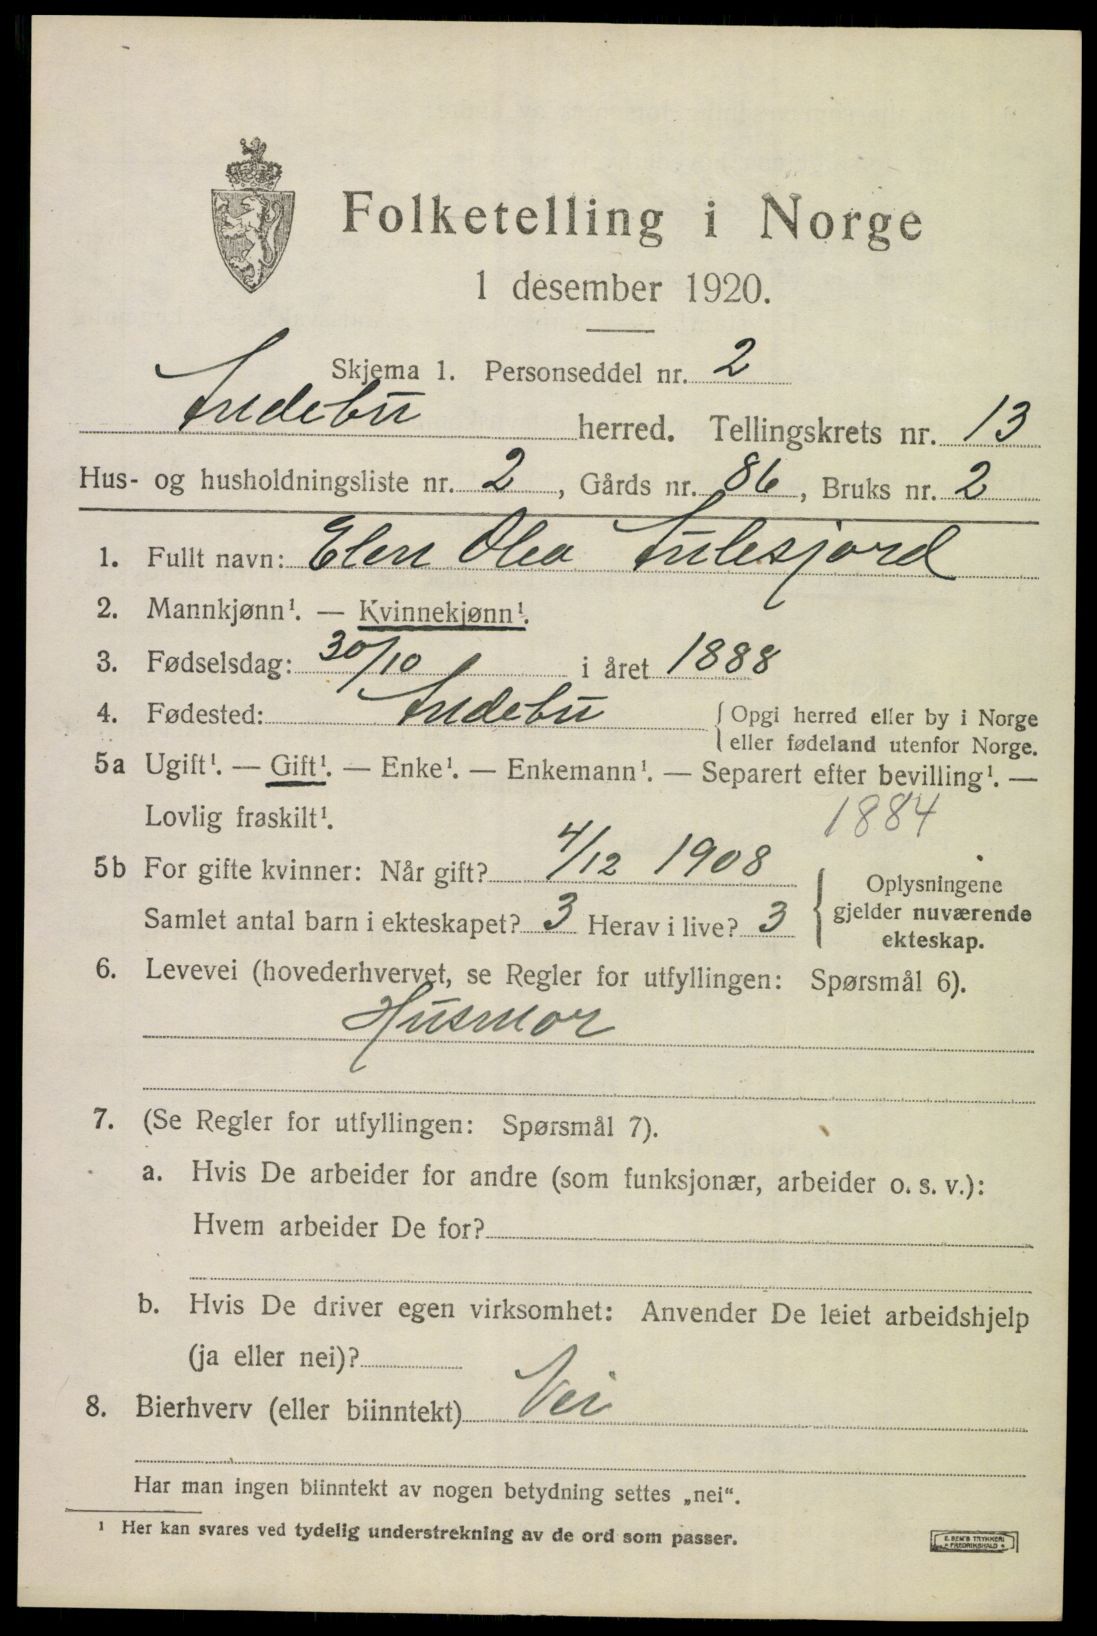 Folketelling i Norge
1 desember 1920.
Skjema 1. Personseddel nr. 2
Andebu herred. Tellingskrets nr. 13
Hus- og husholdningsliste nr. 2, Gårds nr. 86, Bruks nr. 2
1. Fullt navn: Elen Olea
2. Mannkjønn¹. — Kvinnekjønn¹.
3. Fødselsdag: 30/10 i året 1888
4. Fødested: Andebu { Opgi herred eller by i Norge
eller fødeland utenfor Norge.
5a Ugift¹. — Gift¹. — Enke¹. — Enkemann¹. — Separert efter bevilling¹. —
Lovlig fraskilt¹. 1884
5b For gifte kvinner: Når gift? 4/12 1908
Samlet antal barn i ekteskapet? 3 Herav i live? 3
{ Oplysningene
gjelder nuværende
ekteskap.
6. Levevei (hovederhvervet, se Regler for utfyllingen: Spørsmål 6).
Husmor
7. (Se Regler for utfyllingen: Spørsmål 7).
a. Hvis De arbeider for andre (som funksjonær, arbeider o. s. v.):
Hvem arbeider De for?
b. Hvis De driver egen virksomhet: Anvender De leiet arbeidshjelp
(ja eller nei)?
8. Bierhverv (eller biinntekt) Nei
Har man ingen biinntekt av nogen betydning settes „nei“.
¹ Her kan svares ved tydelig understrekning av de ord som passer.
E. SEM'S TRYKKERI
• FREDRIKSHALD •